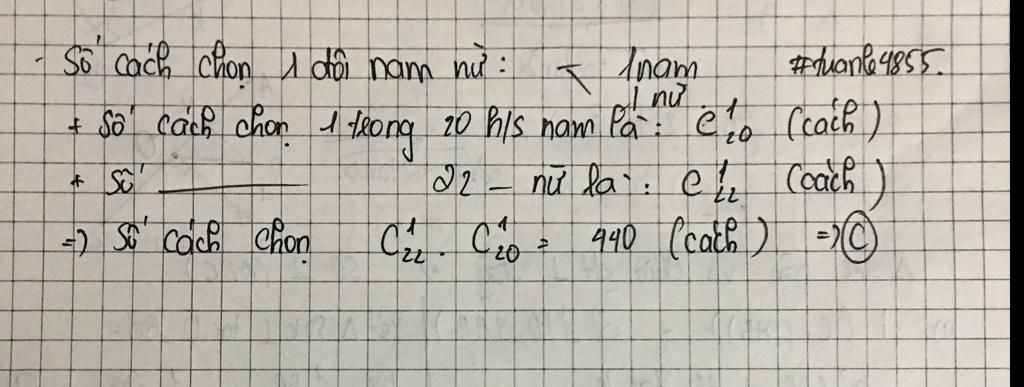 - Số cách chọn 1 đôi nam nữ: < 1 nam #tuanle4855.
1 nữ.
+ Số cách chọn 1 trong 20 h/s nam là: C¹₂₀ (cách)
+ Số ——— 22 — nữ là: C¹₂₂ (cách)
=> Số cách chọn C¹₂₂ . C¹₂₀ = 440 (cách) => Ⓒ